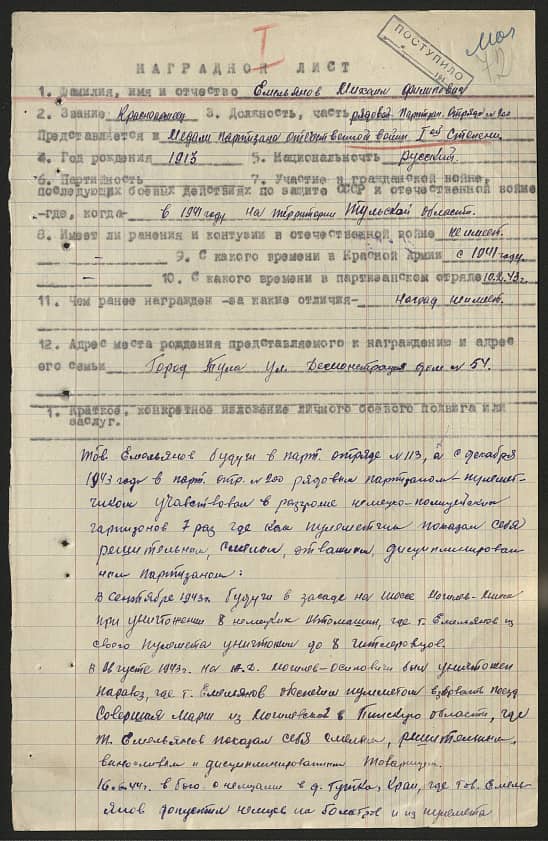 I
ПОСТУПИЛО
НАГРАДНОЙ ЛИСТ
1. Фамилия, имя и отчество Емельянов Михаил Филипович
2. Звание Красноармеец 3. Должность, часть рядовой Партизан. Отряда № 200
Представляется к Медали партизана отечественной войны I ой Степени
4. Год рождения 1913 5. Национальность русский
6. Партийность – 7. Участие в гражданской войне,
последующих боевых действиях по защите СССР и отечественной войне
-где, когда- в 1941 году на территории Тульской област.
8. Имеет ли ранения и контузии в отечественной войне не имеет
– 9. С какого времени в Красной Армии с 1941 году
– 10. С какого времени в партизанском отряде 10.2.43г.
11. Чем ранее награжден -за какие отличия- наград не имеет.
12. Адрес места рождения представляемого к награждению и адрес
его семьи Город Тула ул. Демонстрация дом № 54.
1. Краткое, конкретное изложение личного боевого подвига или
заслуг.
Тов. Емельянов будучи в парт. отряде № 113, а с декабря
1943 году в парт. отр. № 200 рядовым партизаном-пулемет-
чиком учавствовал в разгроме немецко-полицейских
гарнизонов 7 раз где как пулеметчик показал себя
решительном, смелом, отважным, дисциплинирован
ным партизаном:
В сентябре 1943г. будучи в засаде на шоссе Могилев-Минск
при уничтожении 8 немецких автомашин, где т. Емельянов из
своего пулемета уничтожил до 8 гитлеровцев.
В августе 1943г. на ж.д. Могилев-Осиповичи был уничтожен
паравоз, где т. Емельянов обеспечил пулеметом взорвать поезд
Совершая марш из Могилевской в Пинскую область, где
т. Емельянов показал себя смелым, решительным,
выносливым и дисциплинированным товарищем.
16.6.44г. в бою с немцами в д. где тов. Емель-
янов допустил немцев на и из пулемета